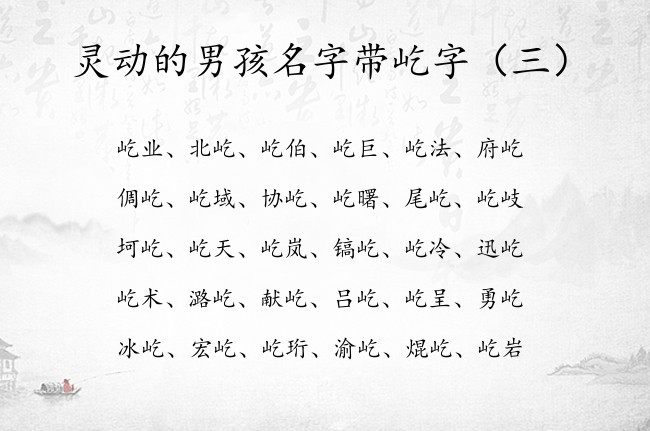 灵动的男孩名字带屹字（三）
屹业、北屹、屹伯、屹巨、屹法、府屹
倜屹、屹域、协屹、屹曙、尾屹、屹歧
坷屹、屹天、屹岚、镐屹、屹冷、迅屹
屹术、潞屹、献屹、吕屹、屹呈、勇屹
冰屹、宏屹、屹珩、渝屹、焜屹、屹岩